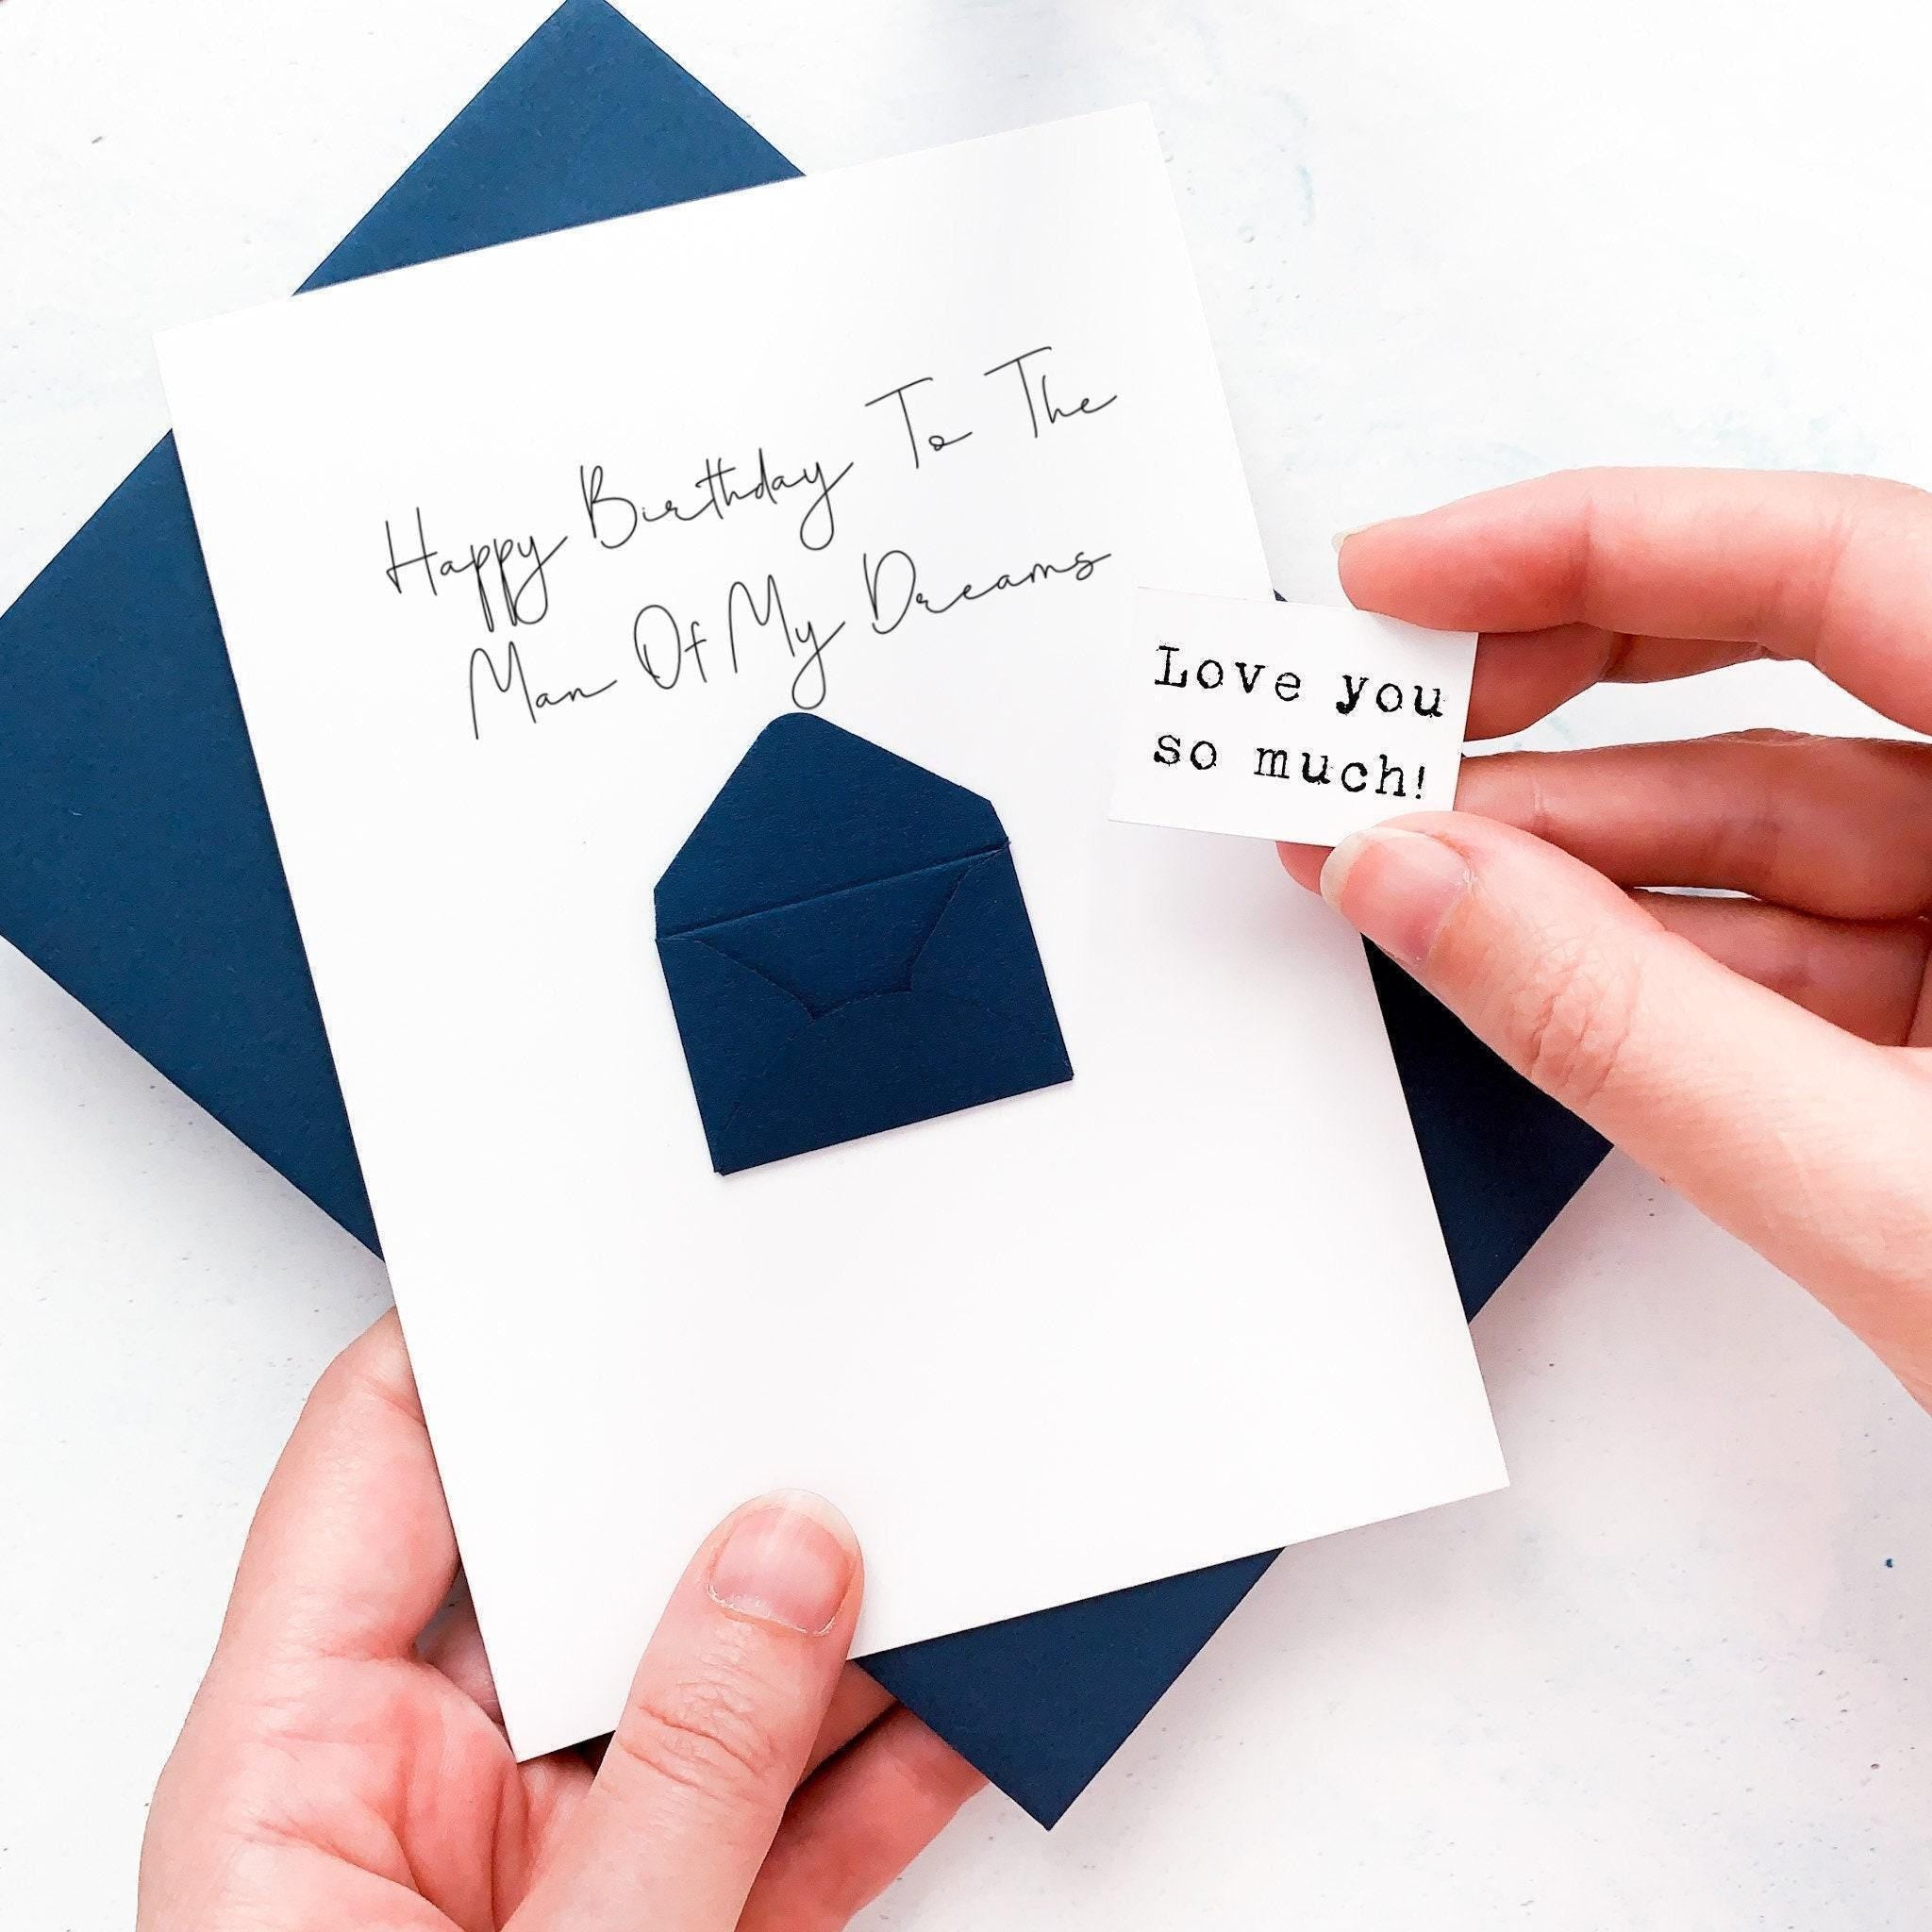 Happy Birthday To The
Man Of My Dreams
Love you
so much!